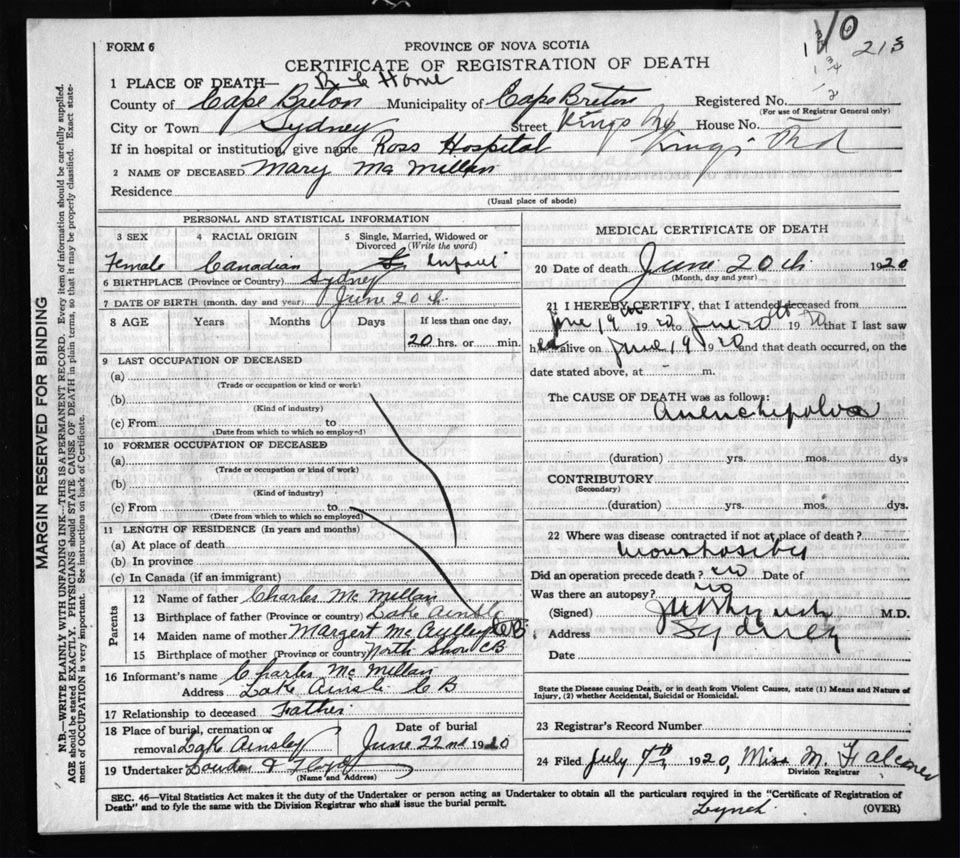 213
FORM 6
PROVINCE OF NOVA SCOTIA
CERTIFICATE OF REGISTRATION OF DEATH
1 PLACE OF DEATH— Home
County of Cape Breton Municipality of Cape Breton Registered No.
(For use of Registrar General only)
City or Town Sydney Street Kings House No.
If in hospital or institution, give name Ross Hospital Kings Rd
2 NAME OF DECEASED Mary Mc Millan
Residence
(Usual place of abode)
PERSONAL AND STATISTICAL INFORMATION
3 SEX 4 RACIAL ORIGIN 5 Single, Married, Widowed or Divorced (Write the word)
Female Canadian Infant
6 BIRTHPLACE (Province or Country) Sydney
7 DATE OF BIRTH (month, day and year) June 20th
8 AGE Years Months Days If less than one day,
20 hrs. or min.
9 LAST OCCUPATION OF DECEASED
(a)
(Trade or occupation or kind or work)
(b)
(Kind of industry)
(c) From to
(Date from which to which so employed)
10 FORMER OCCUPATION OF DECEASED
(a)
(Trade or occupation or kind of work)
(b)
(Kind of industry)
(c) From to
(Date from which to which so employed)
11 LENGTH OF RESIDENCE (In years and months)
(a) At place of death
(b) In province
(c) In Canada (if an immigrant)
Parents
12 Name of father Charles Mc Millan
13 Birthplace of father (Province or country) Lake Ainslie
14 Maiden name of mother Margert Mc Auley CB
15 Birthplace of mother (Province or country) North Shore CB
16 Informant's name Charles Mc Millan
Address Lake Ainslie CB
17 Relationship to deceased Father
18 Place of burial, cremation or removal Lake Ainsley
Date of burial
June 22nd 1920
19 Undertaker Lowden & Floyd
(Name and Address)
MEDICAL CERTIFICATE OF DEATH
20 Date of death June 20th 1920
(Month, day and year)
21 I HEREBY CERTIFY, that I attended deceased from
June 19th 1920 to June 20th 1920 that I last saw
her alive on June 19 1920 and that death occurred, on the
date stated above, at - m.
The CAUSE OF DEATH was as follows:
(duration) yrs. mos. dys
CONTRIBUTORY
(Secondary)
(duration) yrs. mos. dys.
22 Where was disease contracted if not at place of death?
Did an operation precede death? no Date of
Was there an autopsy? no
(Signed) M.D.
Address Sydney
Date
State the Disease causing Death, or in death from Violent Causes, state (1) Means and Nature of
Injury, (2) whether Accidental, Suicidal or Homicidal.
23 Registrar's Record Number
24 Filed July 7th 1920, Miss M. Falconer
Division Registrar
SEC. 46—Vital Statistics Act makes it the duty of the Undertaker or person acting as Undertaker to obtain all the particulars required in the "Certificate of Registration of
Death" and to fyle the same with the Division Registrar who shall issue the burial permit.
Lynch
(OVER)
MARGIN RESERVED FOR BINDING
N.B.—WRITE PLAINLY WITH UNFADING INK—THIS IS A PERMANENT RECORD. Every item of information should be carefully supplied.
AGE should be stated EXACTLY. PHYSICIANS should STATE CAUSE OF DEATH in plain terms, so that it may be properly classified. Exact state-
ment of OCCUPATION is very important. See instructions on back of Certificate.